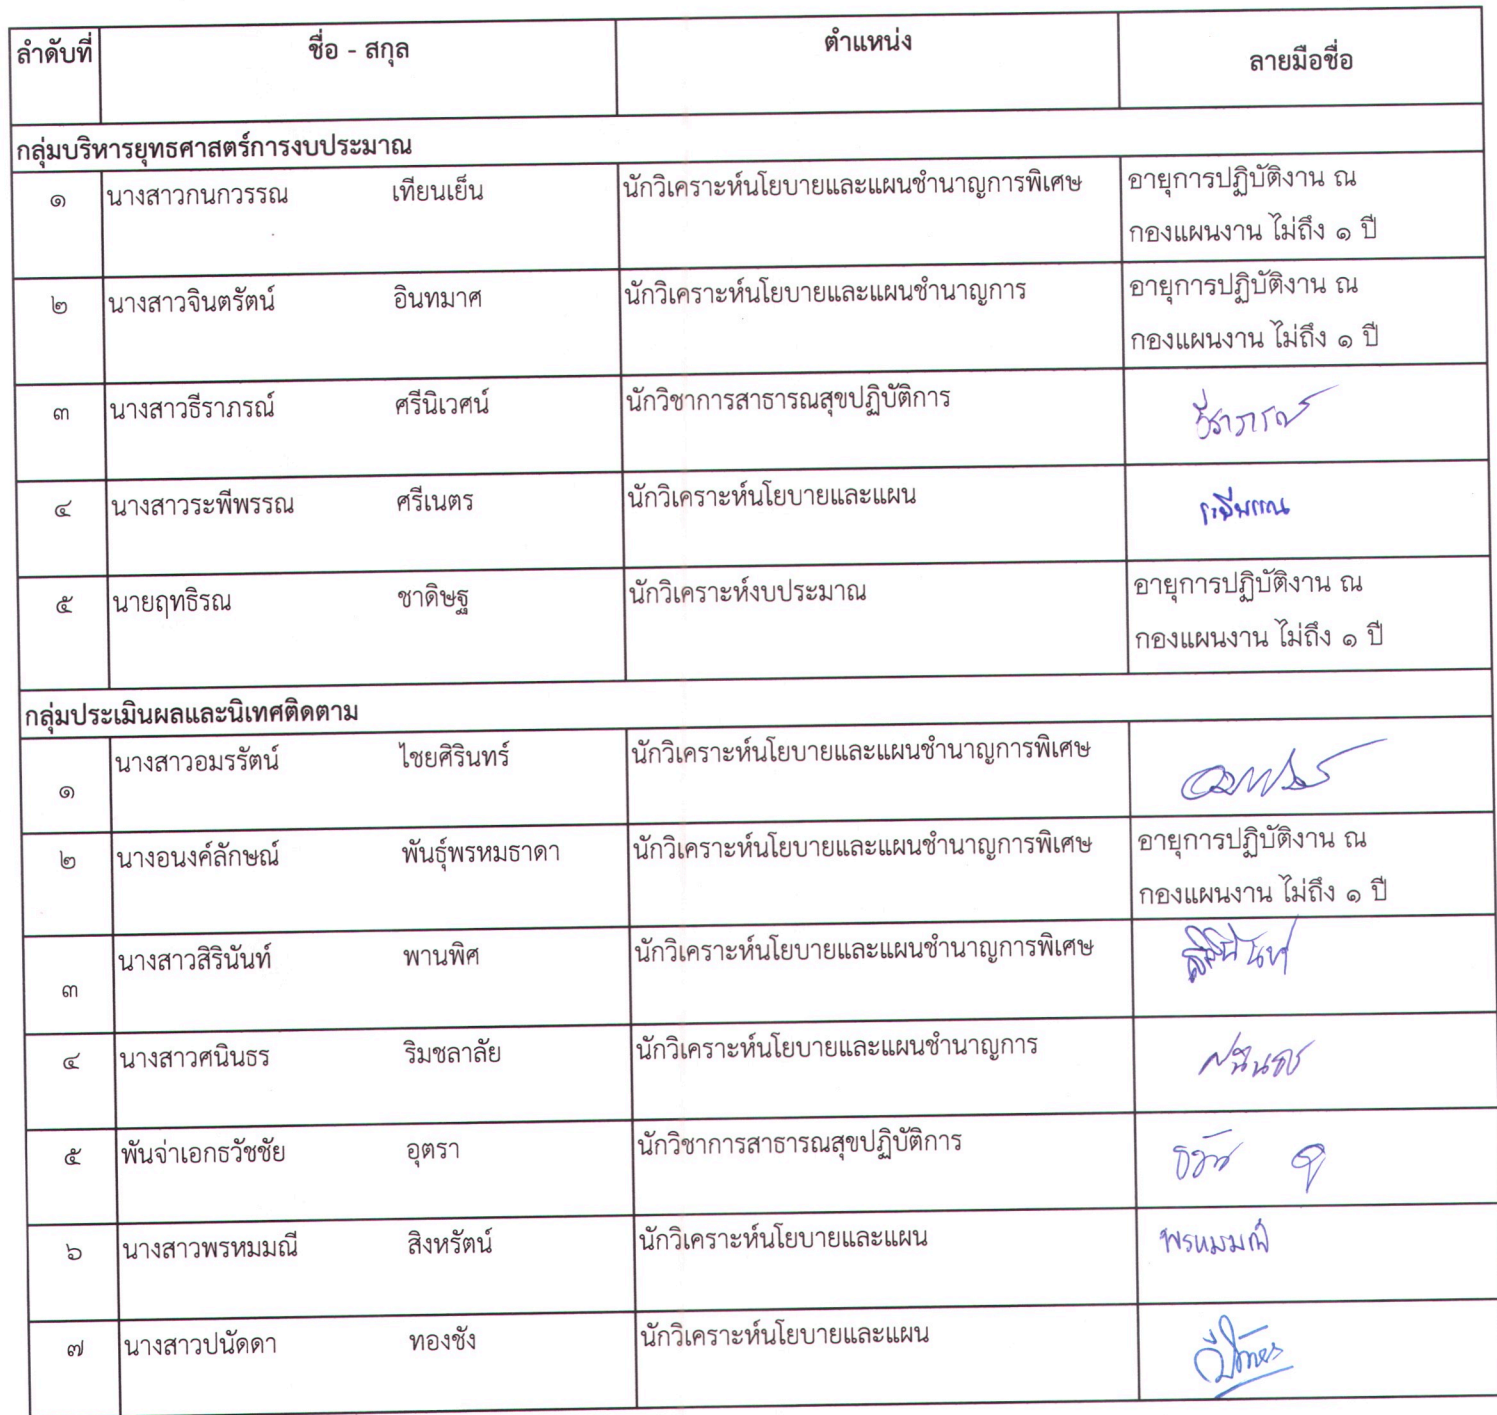 ลำดับที่ ชื่อ - สกุล ตำแหน่ง ลายมือชื่อ
กลุ่มบริหารยุทธศาสตร์การงบประมาณ
๑ นางสาวกนกวรรณ เทียนเย็น นักวิเคราะห์นโยบายและแผนชำนาญการพิเศษ อายุการปฏิบัติงาน ณ
กองแผนงาน ไม่ถึง ๑ ปี
๒ นางสาวจินตรัตน์ อินทมาศ นักวิเคราะห์นโยบายและแผนชำนาญการ อายุการปฏิบัติงาน ณ
กองแผนงาน ไม่ถึง ๑ ปี
๓ นางสาวธีราภรณ์ ศรีนิเวศน์ นักวิชาการสาธารณสุขปฏิบัติการ ธีราภรณ์
๔ นางสาวระพีพรรณ ศรีเนตร นักวิเคราะห์นโยบายและแผน ระพีพรรณ
๕ นายฤทธิรณ ชาดิษฐ นักวิเคราะห์งบประมาณ อายุการปฏิบัติงาน ณ
กองแผนงาน ไม่ถึง ๑ ปี
กลุ่มประเมินผลและนิเทศติดตาม
๑ นางสาวอมรรัตน์ ไชยศิรินทร์ นักวิเคราะห์นโยบายและแผนชำนาญการพิเศษ
๒ นางอนงค์ลักษณ์ พันธุ์พรหมธาดา นักวิเคราะห์นโยบายและแผนชำนาญการพิเศษ อายุการปฏิบัติงาน ณ
กองแผนงาน ไม่ถึง ๑ ปี
๓ นางสาวสิรินันท์ พานพิศ นักวิเคราะห์นโยบายและแผนชำนาญการพิเศษ สิรินันท์
๔ นางสาวศนินธร ริมชลาลัย นักวิเคราะห์นโยบายและแผนชำนาญการ ศนินธร
๕ พันจ่าเอกธวัชชัย อุตรา นักวิชาการสาธารณสุขปฏิบัติการ
๖ นางสาวพรหมมณี สิงหรัตน์ นักวิเคราะห์นโยบายและแผน พรหมมณี
๗ นางสาวปนัดดา ทองชัง นักวิเคราะห์นโยบายและแผน